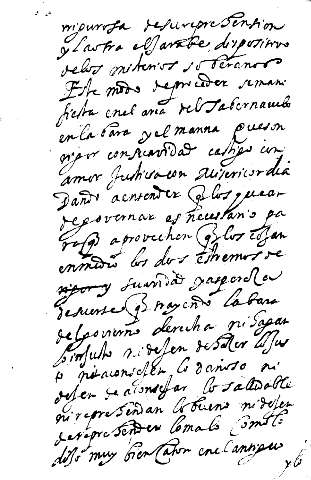 rigurosa de su reprehension
y la otra el sarabe dispositivo
de los misterios soberanos
Este modo de proceder se mani
fiesta en el arca del tabernaculo
en la bara y el manna que son
rigor con suavidad castigo con
amor Justicia con misericordia
Dando a entender q los que an
de governar es necesario pa
ra q aprovechen q los esten
en medio los dos estremos de
rigor y suavidad y aspereza
de suerte q trayendo la bara
del govierno derecha ni hagan
lo injusto ni dejen de hazer lo jus
to ni aconsejen lo dañoso ni
dejen de aconsejar lo saludable
ni reprehendan lo bueno ni dejen
de reprehender lo malo como lo
dijo muy bien Caton en el antiguo
y lo